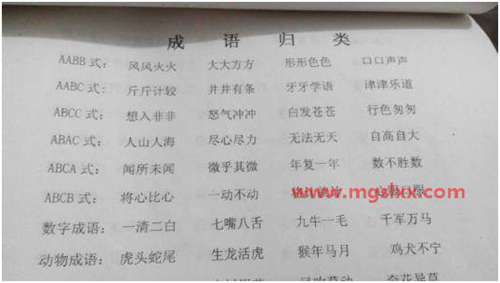 成语归类
AABB式： 风风火火 大大方方 形形色色 口口声声
AABC式： 斤斤计较 井井有条 牙牙学语 津津乐道
ABCC式： 想入非非 怒气冲冲 白发苍苍 行色匆匆
ABAC式： 人山人海 尽心尽力 无法无天 自高自大
ABCA式： 闻所未闻 微乎其微 年复一年 数不胜数
ABCB式： 将心比心 一动不动
www.mgslxx.com
数字成语： 一清二白 七嘴八舌 九牛一毛 千军万马
动物成语： 虎头蛇尾 生龙活虎 猴年马月 鸡犬不宁